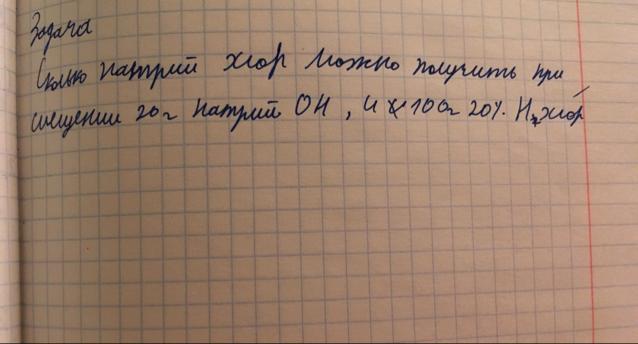 Задача
Сколько натрий хлор можно получить при
смещении 20г натрий OH, и 100г 20%. H хлор